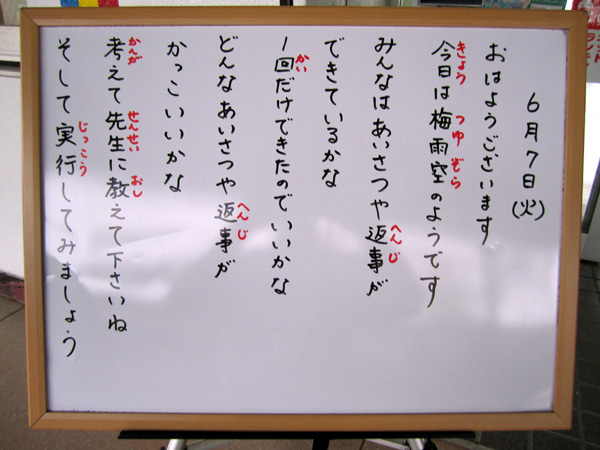 6月7日(火)
おはようございます
今日は梅雨空のようです
きょう つゆ ぞら
みんなはあいさつや返事が
へんじ
できているかな
1回だけできたのでいいかな
かい
どんなあいさつや返事が
へんじ
かっこいいかな
考えて先生に教えて下さいね
かんが せんせい おし
そして実行してみましょう
じっこう